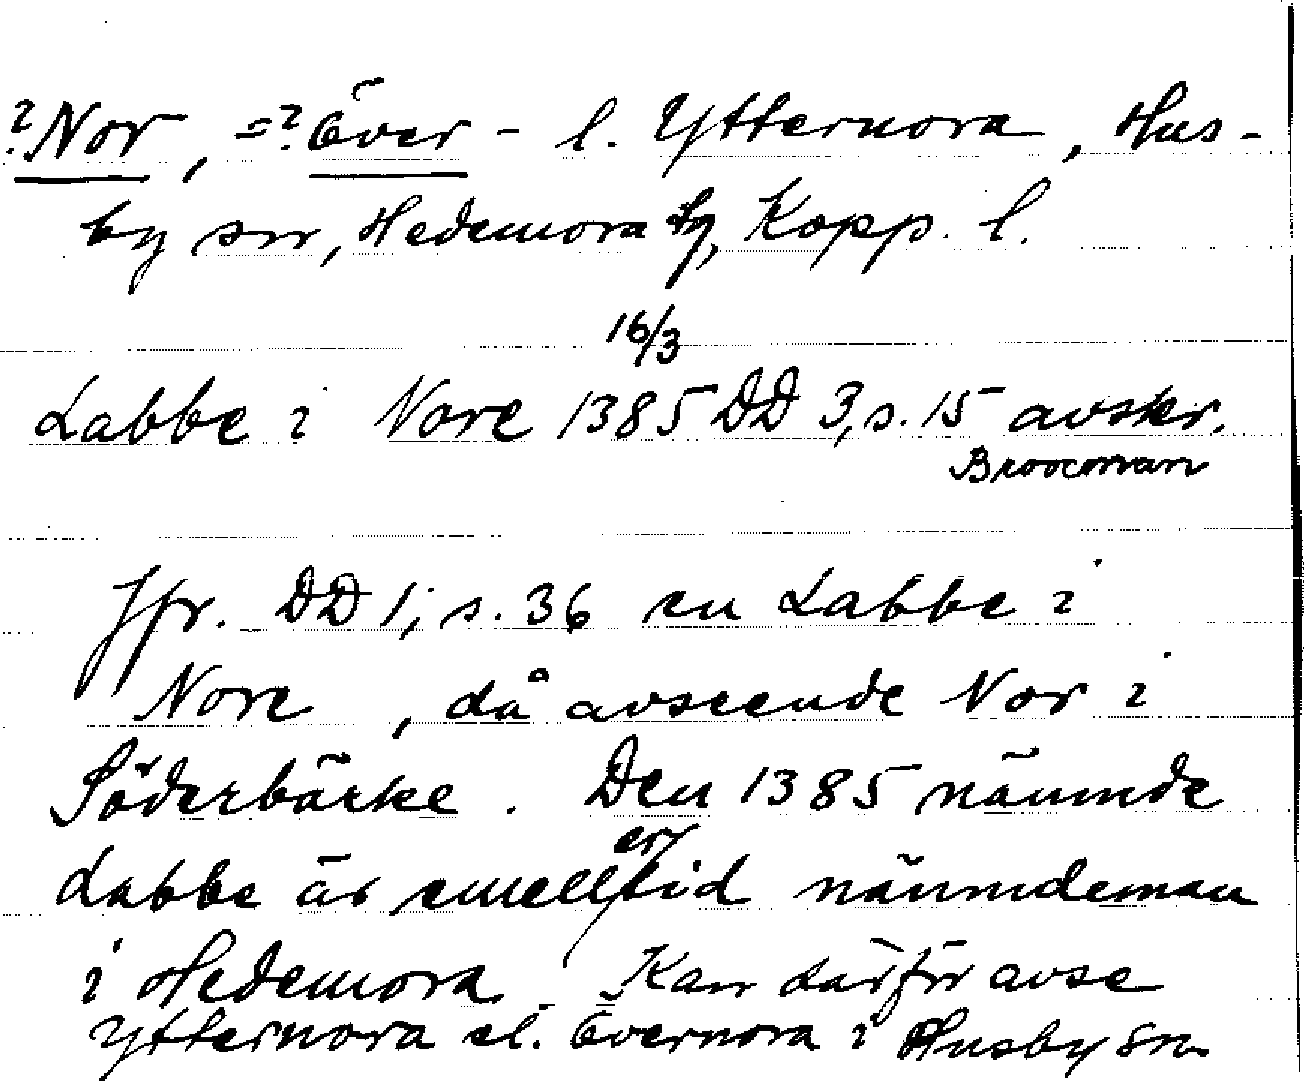 ?Nor, =? Över- l. Ytternora, Hus-
by sn, Hedemora hg, Kopp. l.
16/3
Labbe i Nore 1385 DD 3, s. 15 avskr.
Broocman
Jfr. DD 1, s. 36 en Labbe i
Nore, då avseende Nor i
Söderbärke. Den 1385 nämnde
Labbe är emellertid nämndeman
i Hedemora. Kan därför avse
Ytternora el. Övernora i Husby sn